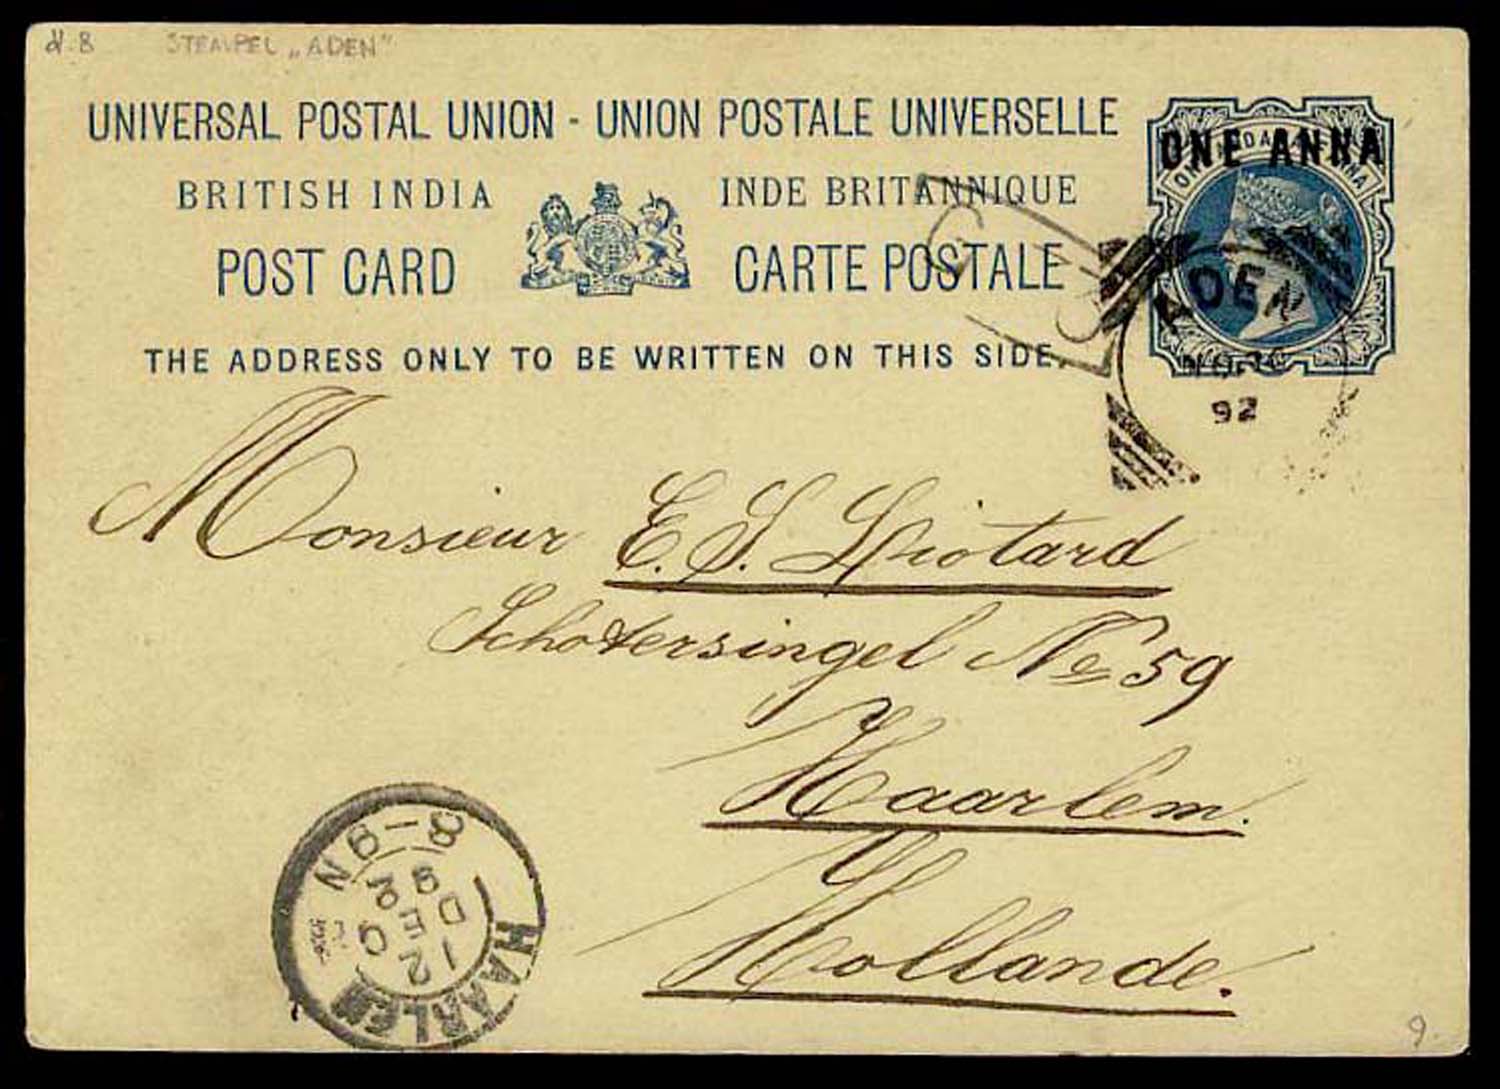 STEMPEL „ADEN"
UNIVERSAL POSTAL UNION - UNION POSTALE UNIVERSELLE
ONE ANNA
BRITISH INDIA INDE BRITANNIQUE
POST CARD CARTE POSTALE
THE ADDRESS ONLY TO BE WRITTEN ON THIS SIDE.
ADEN
92
Monsieur E. S. Liotard
Schotersingel No 59
Haarlem.
Hollande.
HAARLEM
12 DE 92
8-9N
9.